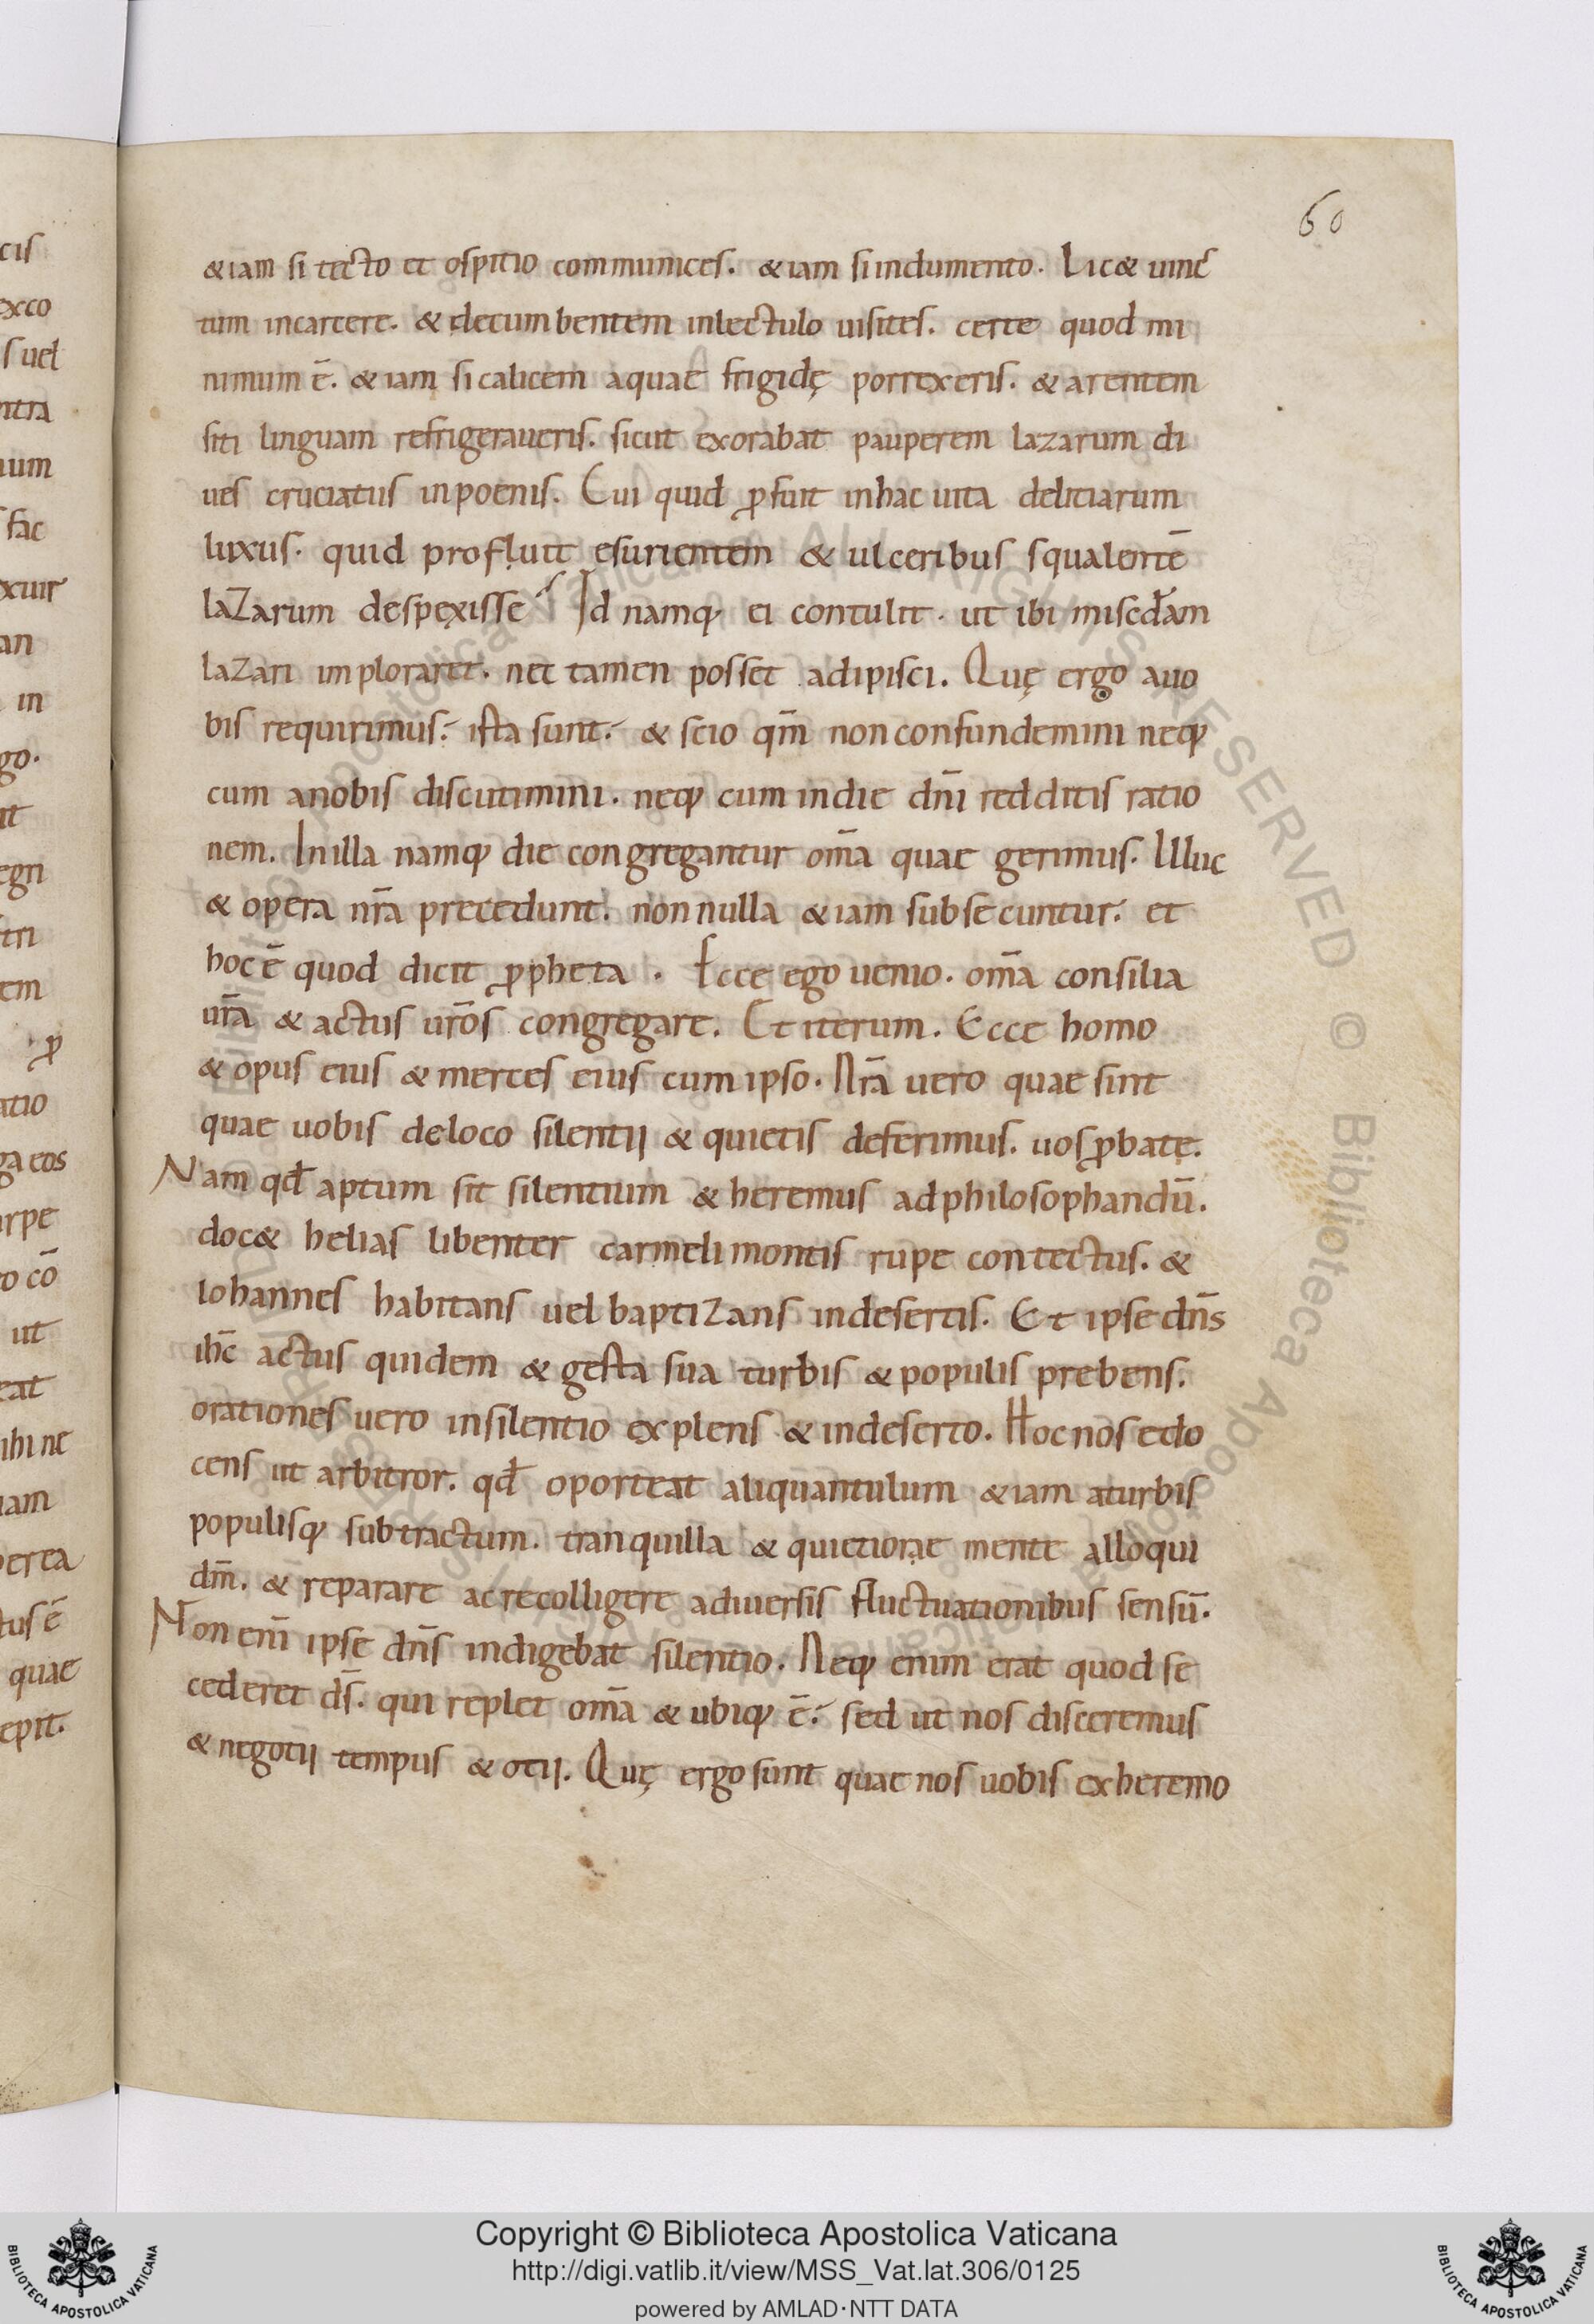 60
&iam si tecto et ospitio communices. &iam si indumento. Lic& uinc
tum incarcere. & decumbentem inlectulo uisites. certe quod mi
nimum ē. &iam si calicem aquae frigidę porrexeris. & arentem
siti linguam refrigeraueris. sicut exorabat pauperem lazarum di
ues cruciatus inpoenis. Cui quid ꝓfuit inhac uita delitiarum
luxus. quid profluit esurientem & ulceribus squalentē
laZarum despexisse Id namq; ei contulit. ut ibi miscd̄am
laZari imploraret. nec tamen posset adipisci. Quę ergo auo
bis requirimus. ista sunt. & scio qm̄ non confundemini neq;
cum anobis discutimini. neq; cum indie dn̄i redditis ratio
nem. Inilla namq; die congregantur om̄a quae gerimus. Illuc
& opera nr̄a precedunt. non nulla &iam subsecuntur. et
hoc ē quod dicit ꝓpheta. Ecce ego uenio. om̄a consilia
ur̄a & actus ur̄os congregare. Et iterum. Ecce homo
& opus eius & merces eius cum ipso. Nr̄a uero quae sint
quae uobis deloco silentii & quietis deferimus. uos ꝓbate.
Nam qd̄ aptum sit silentium & heremus adphilosophandū.
doc& helias libenter carmeli montis rupe contectus. &
Iohannes habitans uel baptiZans indesertis. Et ipse dn̄s
ih̄c actus quidem & gesta sua turbis & populis prebens.
orationes uero insilentio explens & indeserto. Hoc nos edo
cens ut arbitror. qd̄ oporteat aliquantulum &iam aturbis
populisq; subtractum. tranquilla & quietiorae mente alloqui
dm̄. & reparare ac recolligere adiuersis fluctuationibus sensū.
Non eni̅ ipse dn̄s indigebat silentio. Neq; enim erat quod se
cederet ds̄. qui replet om̄a & ubiq; ē. sed ut nos disceremus
& negotii tempus & otii. Quę ergo sunt quae nos uobis exheremo
Copyright © Biblioteca Apostolica Vaticana
http://digi.vatlib.it/view/MSS_Vat.lat.306/0125
powered by AMLAD·NTT DATA